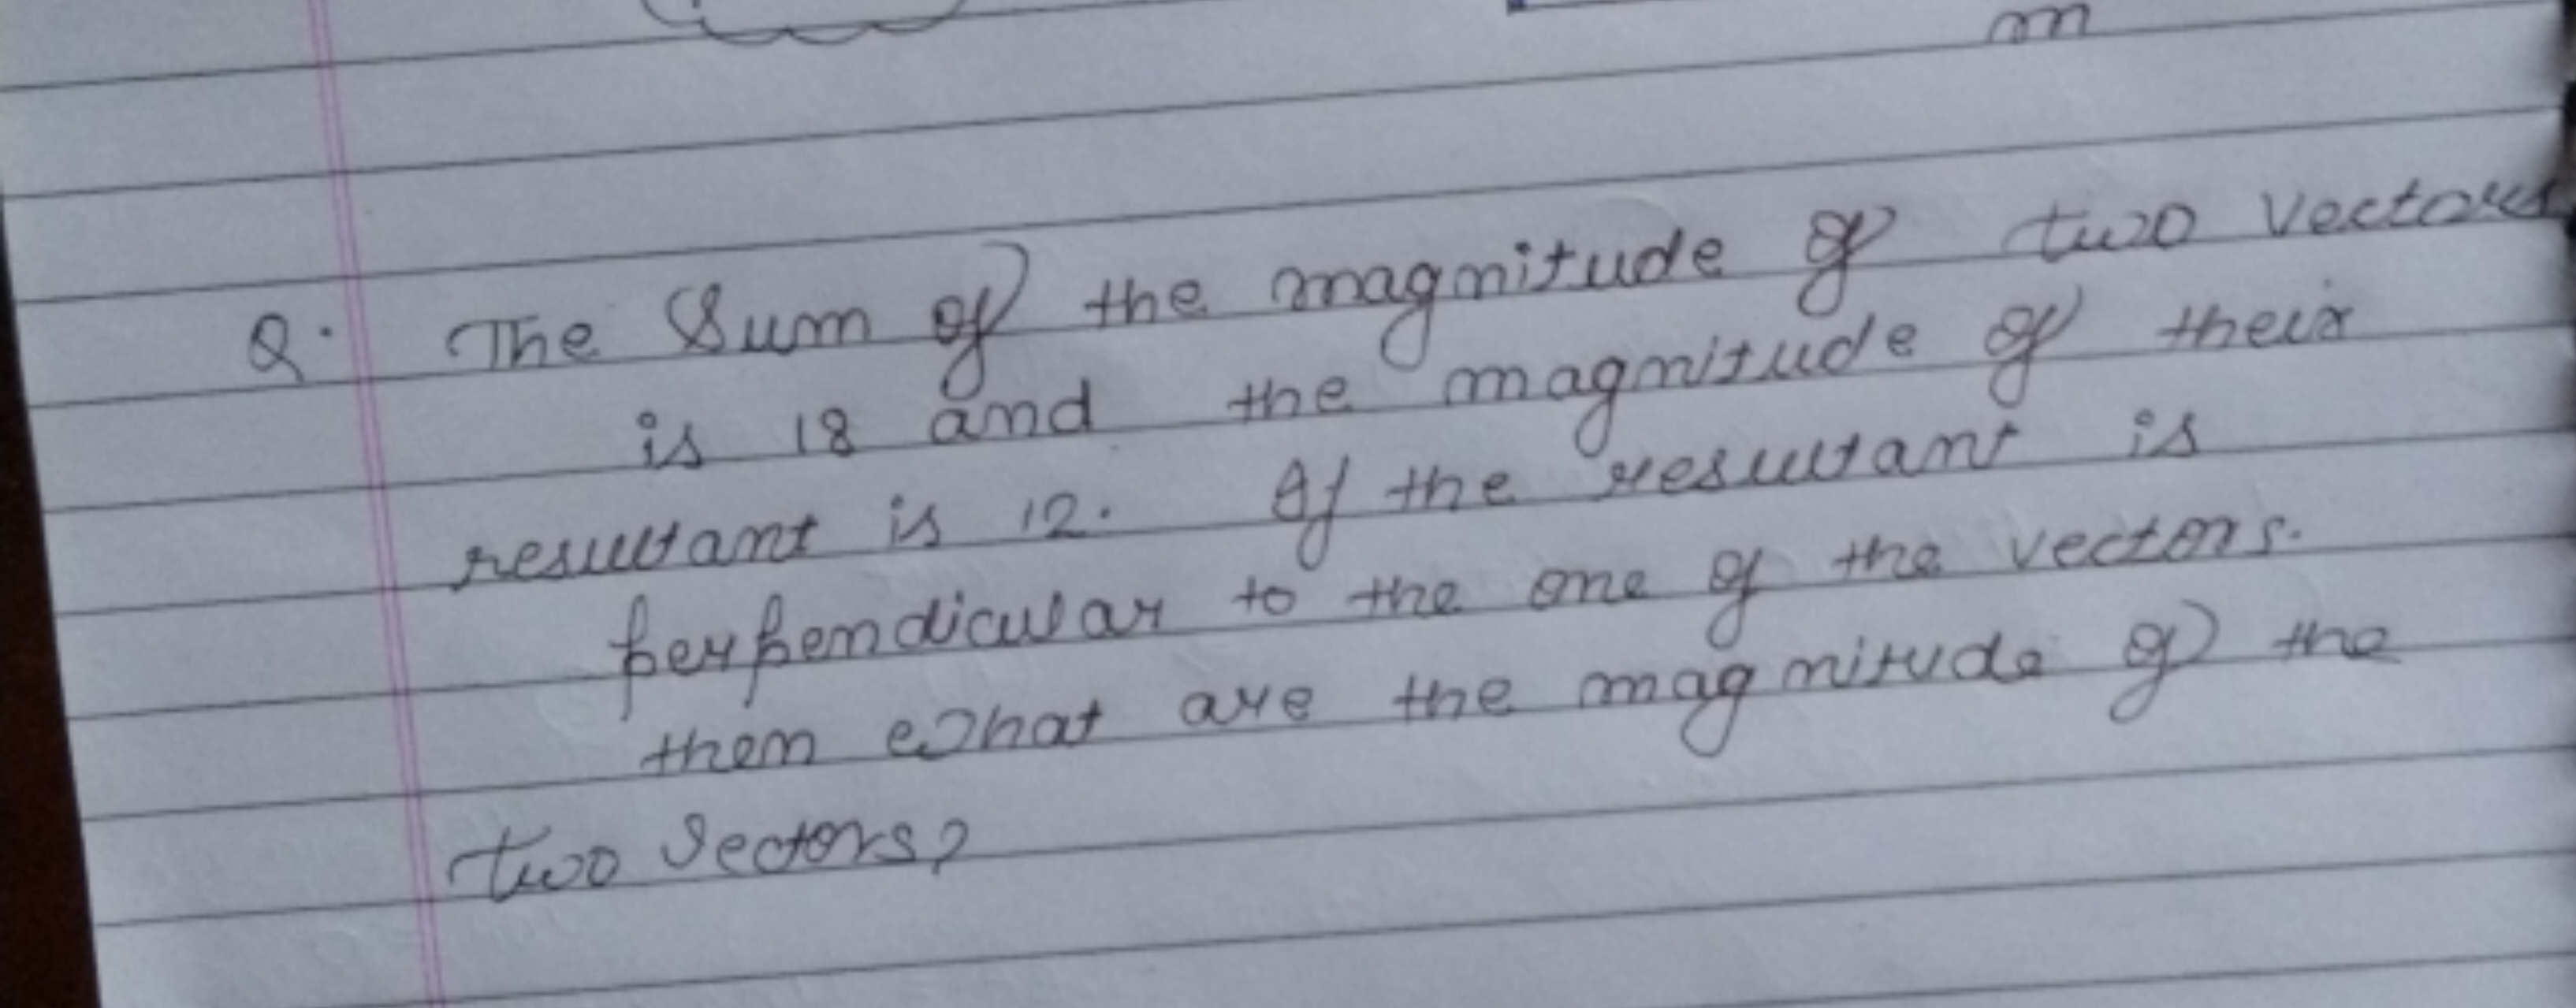 m
Q. The Sum of the magnitude of two vectors
is 18 and the magnitude of their
resultant is 12. If the resultant is
perpendicular to the one of the vectors.
them what are the magnitude of the
two vectors?